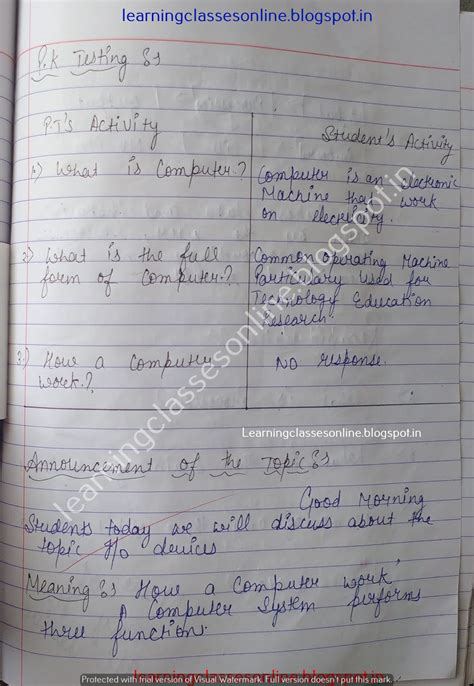 learningclassesonline.blogspot.in
P.K Testing :-
P.T'S Activity
Student's Activity
1) What is Computer.?
Computer is an electronic
Machine that work
on electricity.
2) What is the full
form of Computer.?
Common operating Machine
Particulary Used for
Technology Education
Research.
3.) How a Computer
work.?
No response.
learningclassesonline.blogspot.in
Learningclassesonline.blogspot.in
Announcement of the Topic :-
Good Morning
Students today we will discuss about the
topic I/O devices
Meaning :- How a Computer work'
A Computer System performs
three functions.
learningclassesonline.blogspot.in
Protected with trial version of Visual Watermark. Full version doesn't put this mark.